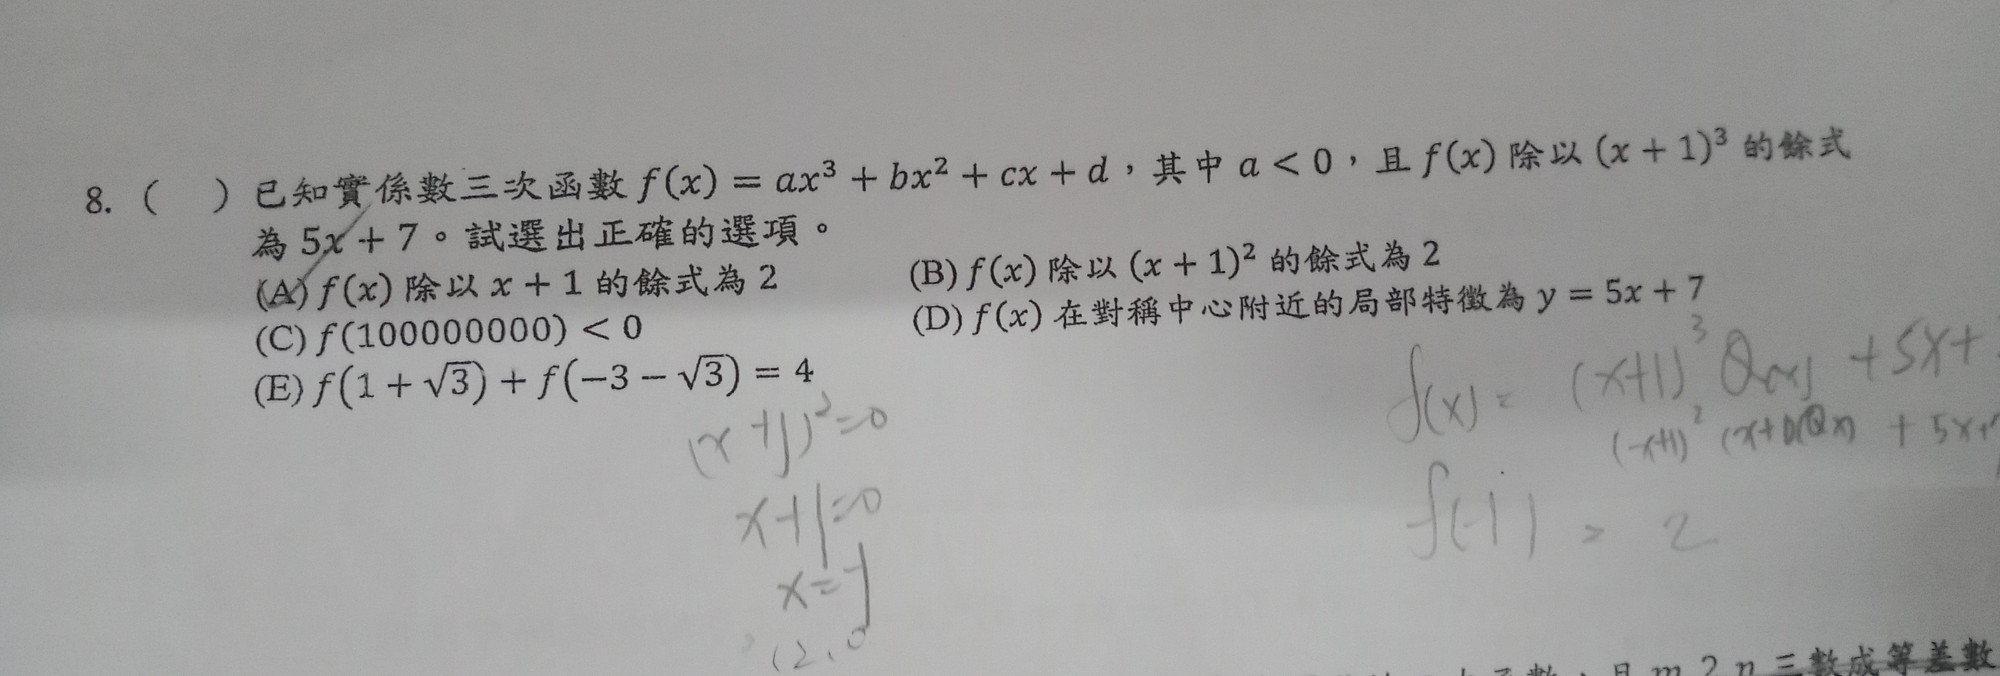 8. (　) 已知實係數三次函數 f(x) = ax³ + bx² + cx + d，其中 a < 0，且 f(x) 除以 (x + 1)³ 的餘式
為 5x + 7。試選出正確的選項。
(A) f(x) 除以 x + 1 的餘式為 2 (B) f(x) 除以 (x + 1)² 的餘式為 2
(C) f(100000000) < 0 (D) f(x) 在對稱中心附近的局部特徵為 y = 5x + 7
(E) f(1 + √3) + f(−3 − √3) = 4
f(x) = (x+1)³ Q(x) + 5x+
(x+1)² (x+1)Q(x) + 5x+
f(-1) = 2
(x+1)²=0
x+1=0
x=-1
(2,0
且 m 2 n 三數成等差數